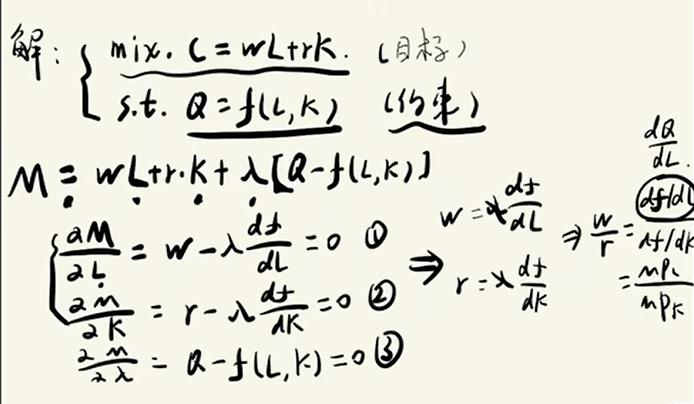 解: mix. C = wL+rK. (目标)
s.t. Q = f(L,K) (约束)
M = wL+r·K+λ[Q-f(L,K)]
∂M/∂L = w-λ df/dL = 0 ①
∂M/∂K = r-λ df/dK = 0 ②
∂M/∂λ = Q-f(L,K) = 0 ③
⇒ w = λ df/dL
r = λ df/dK
dQ/dL.
⇒ w/r = df/dL / df/dK
= MPL/MPK